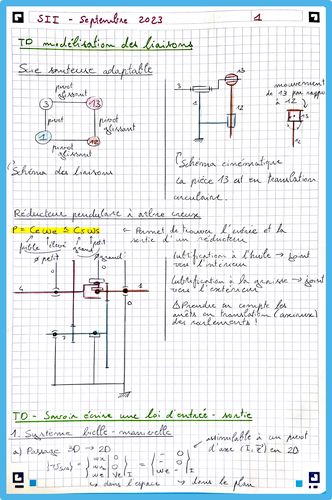 SII - Septembre 2023 1
TD modélisation des liaisons
Scie sauteuse adaptable
pivot glissant
3 13
pivot pivot
1 12
pivot glissant
Schéma des liaisons
13
1 12
mouvement
de 13 par rapport
à 12
13
12
Schéma cinématique
la pièce 13 est en translation
circulaire.
Réducteur pendulaire à arbre creux
P = Ce we ≥ Cs ws
faible élevé fort
Ø petit Ø grand
← Permet de trouver l'entrée et la
sortie d'un réducteur
Lubrification à l'huile → joint
vers l'intérieur
Lubrification à la graisse → joint
vers l'extérieur
⚠ Prendre en compte les
arrêts en translation (axiaux)
des roulements !
4 1
0
TD - Savoir écrire une loi d'entrée - sortie
1. Système bielle - manivelle
a) Passage 3D → 2D
assimilable à un pivot
d'axe (I, z) en 2D
→ dans l'espace → dans le plan